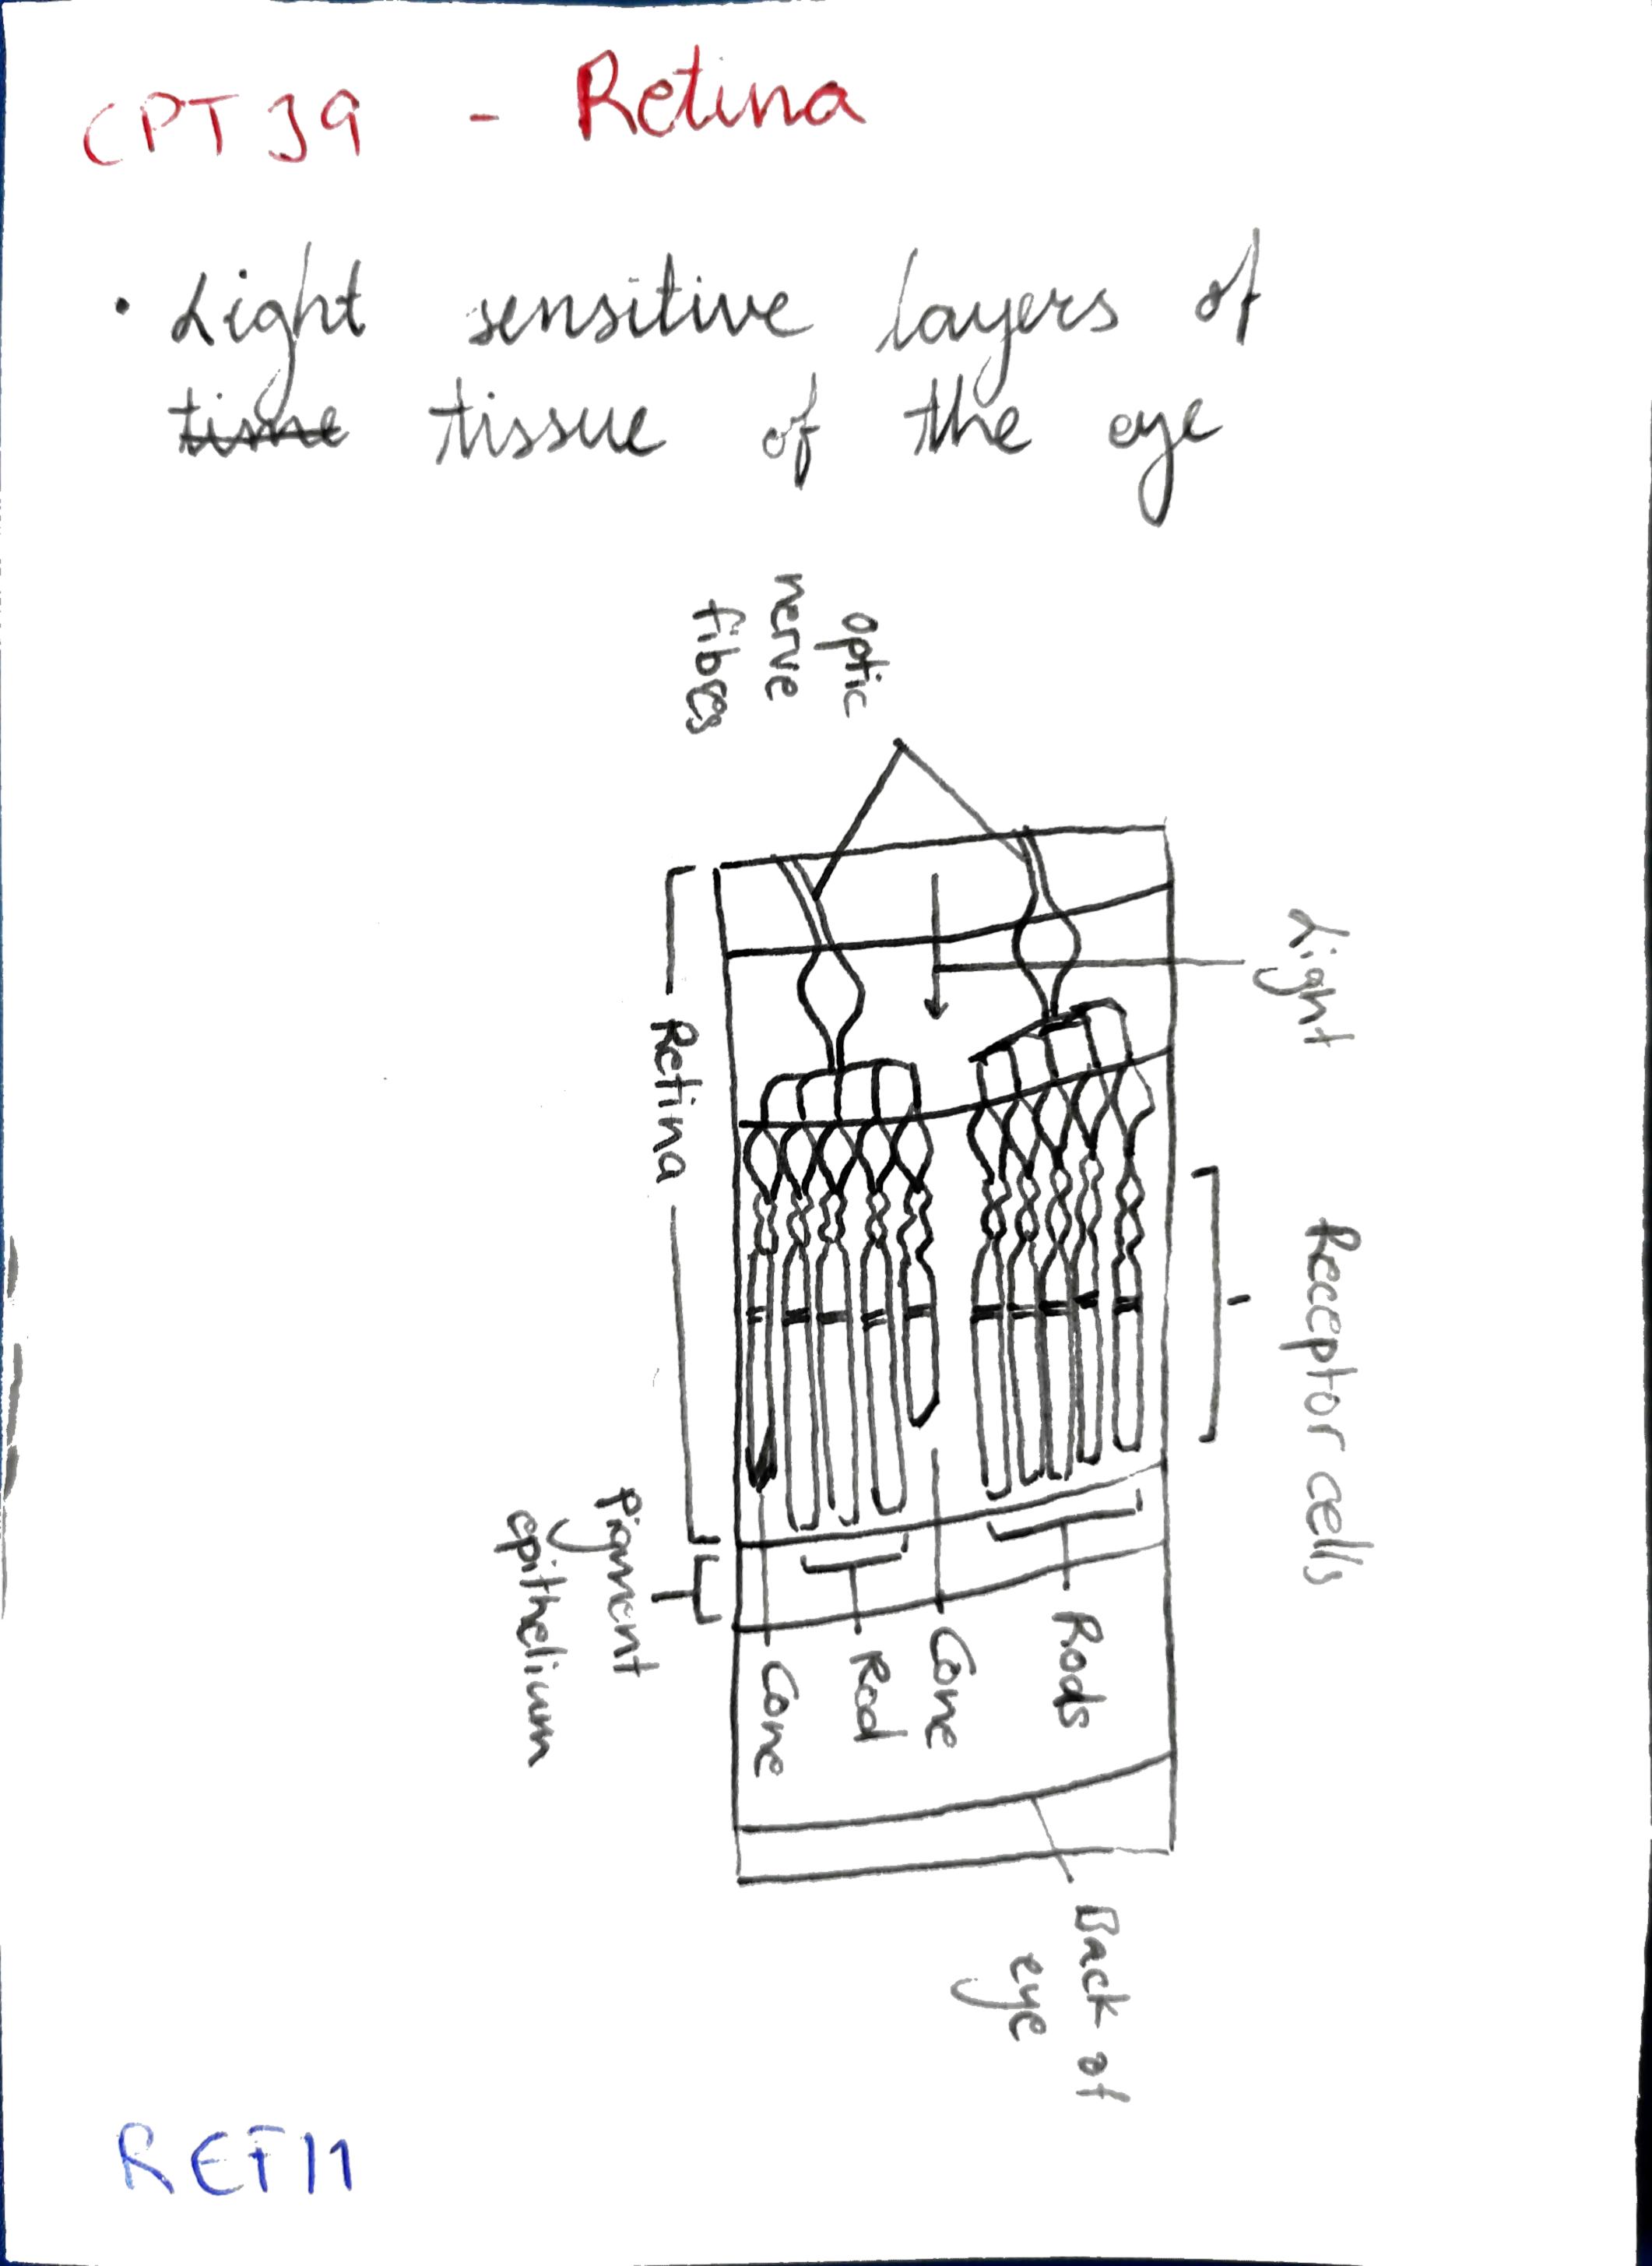 CPT 39 - Retina
• Light sensitive layers of
time tissue of the eye
optic
nerve
fibers
Light
Retina
Receptor cells
Pigment
epithelium
Rods
Cone
Rod
Cone
Back of
eye
REF11